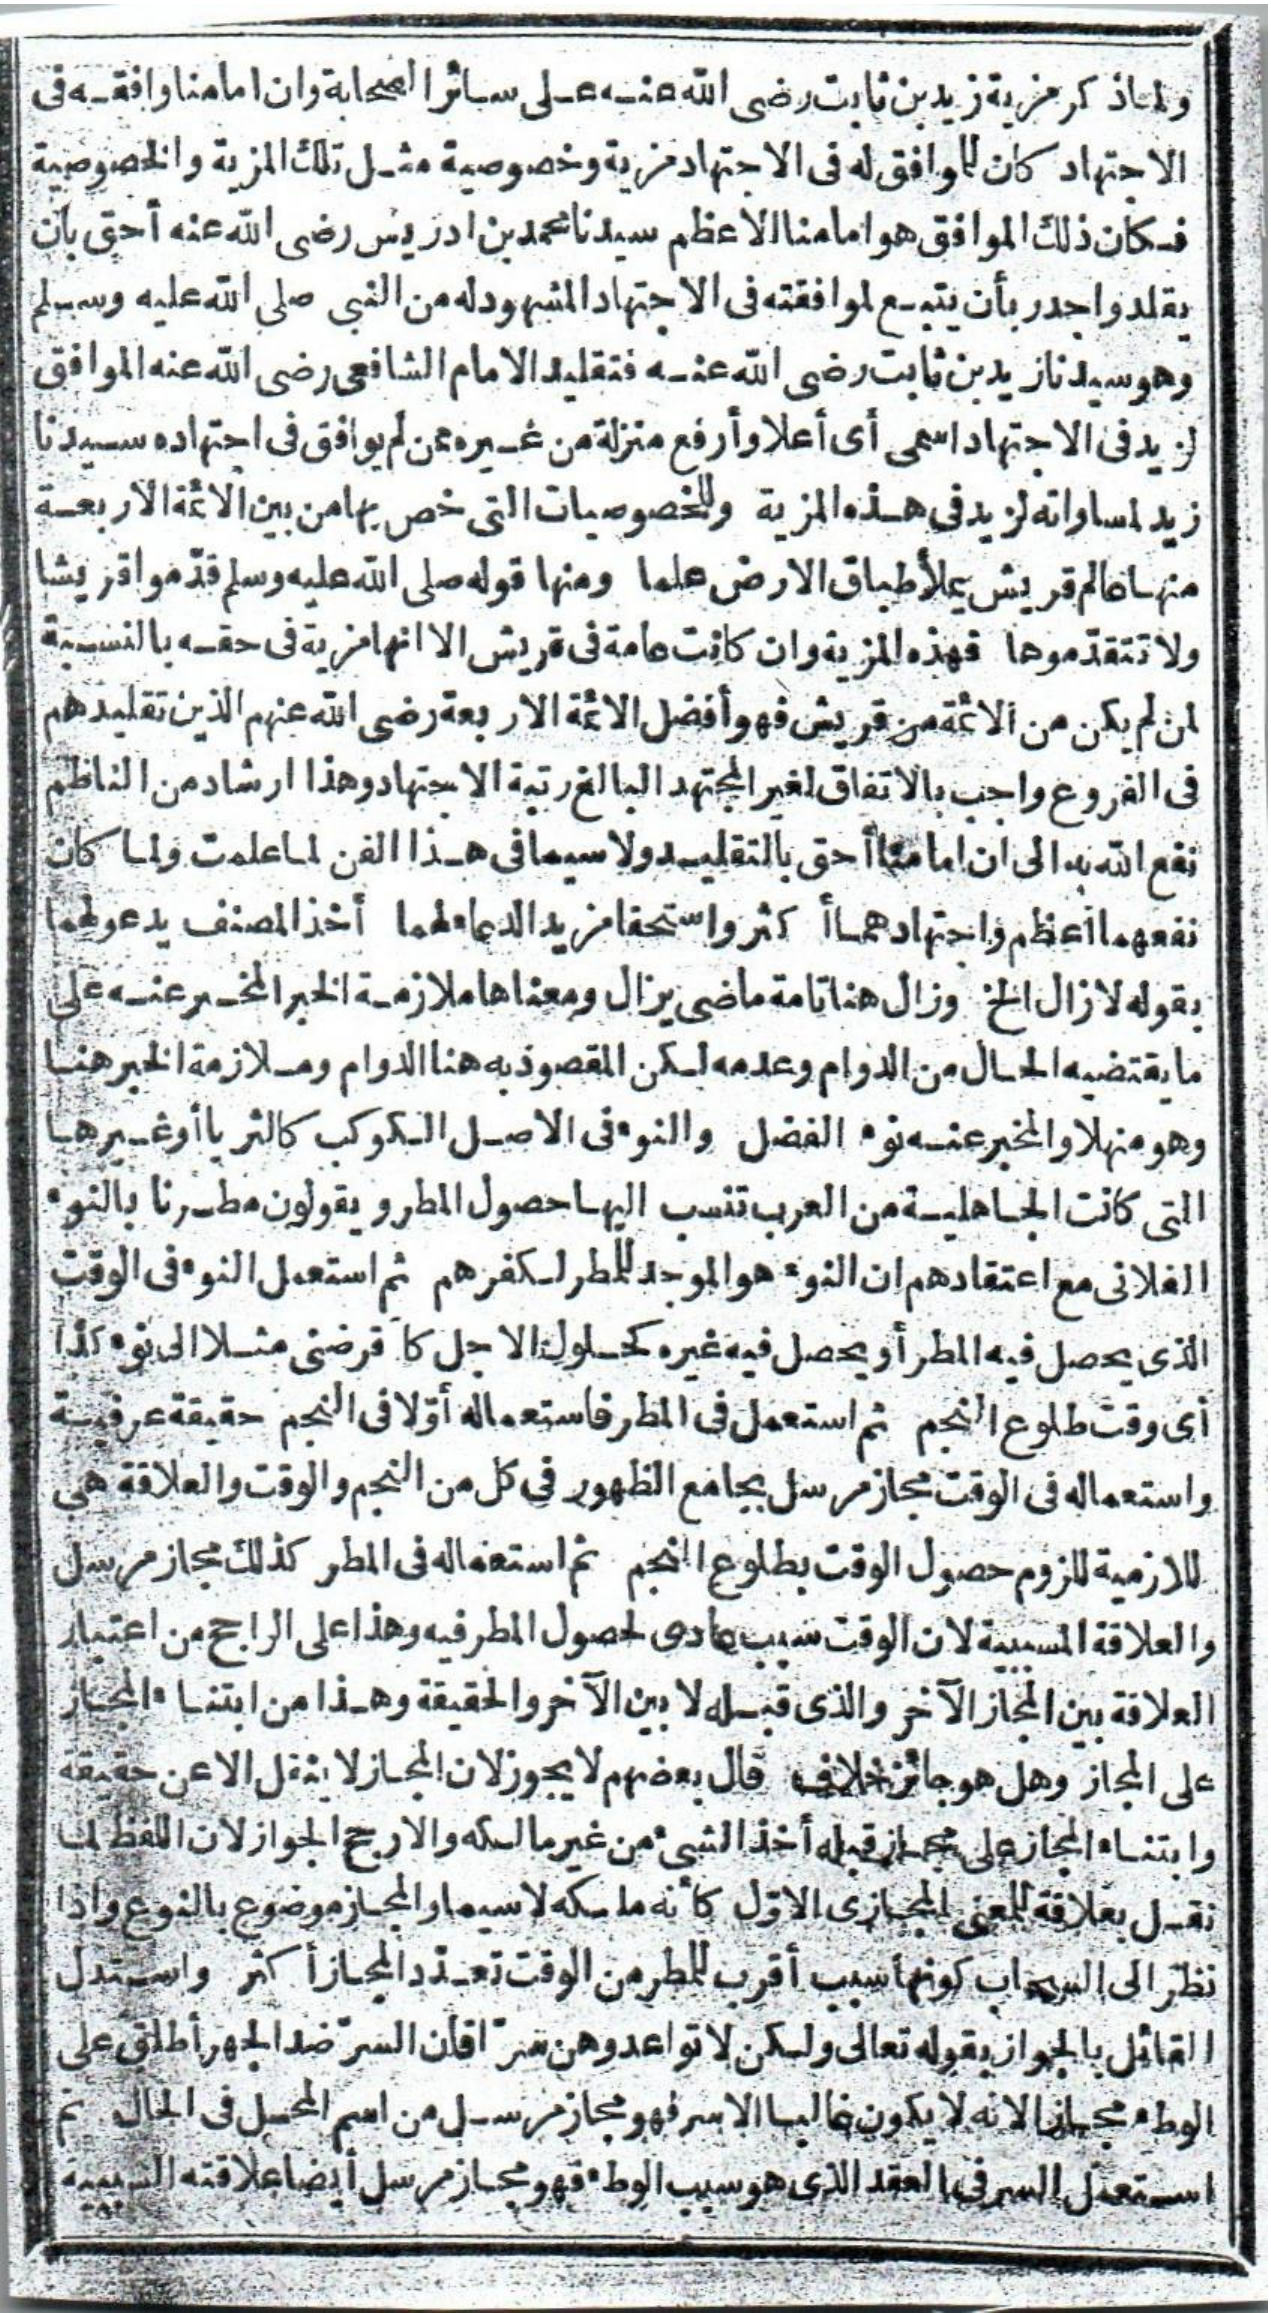 ولماذ كر مزية زيد بن ثابت رضى الله عنه على سائر الصحابة وان امامنا وافقه فى
الاجتهاد كان للموافق له فى الاجتهاد مزية وخصوصية مثل تلك المزية والخصوصية
فكان ذلك الموافق هو امامنا الاعظم سيدنا محمد بن ادريس رضى الله عنه أحق بأن
يقلد واجدر بأن يتبع لموافقته فى الاجتهاد المشهود له من النبى صلى الله عليه وسلم
وهو سيدنا زيد بن ثابت رضى الله عنه فتقليد الامام الشافعى رضى الله عنه الموافق
لزيد فى الاجتهاد اسمى أى أعلا وأرفع منزلة من غيره ممن لم يوافق فى اجتهاده سيدنا
زيد لمساواته لزيد فى هذه المزية وللخصوصيات التى خص بها من بين الائمة الاربعة
منها عالم قريش يملأ طباق الارض علما ومنها قوله صلى الله عليه وسلم قدّموا قريشا
ولا تتقدّموها فهذه المزية وان كانت عامة فى قريش الا انها مزية فى حقه بالنسبة
لمن لم يكن من الائمة من قريش فهو أفضل الائمة الاربعة رضى الله عنهم الذين تقليدهم
فى الفروع واجب بالاتفاق لغير المجتهد البالغ رتبة الاجتهاد وهذا ارشاد من الناظم
نفع الله به الى ان امامنا أحق بالتقليد ولا سيما فى هذا الفن لما علمت ولما كان
نفعهما اعظم واجتهادهما أكثر واستحقا مزيد الدعاء لهما أخذ المصنف يدعو لهما
بقوله لا زال الخ وزال هنا تامة ماضى يزال ومعناها ملازمة الخبر المخبر عنه على
ما يقتضيه الحال من الدوام وعدمه لكن المقصود به هنا الدوام وملازمة الخبر هنا
وهو منهلا والمخبر عنه نوء الفضل والنوء فى الاصل الكوكب كالثريا أو غيرها
التى كانت الجاهلية من العرب تنسب اليها حصول المطر ويقولون مطرنا بالنوء
الفلانى مع اعتقادهم ان النوء هو الموجد للمطر لكفرهم ثم استعمل النوء فى الوقت
الذى يحصل فيه المطر أو يحصل فيه غيره كحلول الاجل كاَقرضنى مثلا الى نوء كذا
أى وقت طلوع النجم ثم استعمل فى المطر فاستعماله أوّلا فى النجم حقيقة عرفية
واستعماله فى الوقت مجاز مرسل بجامع الظهور فى كل من النجم والوقت والعلاقة هى
للازمية للزوم حصول الوقت بطلوع النجم ثم استعماله فى المطر كذلك مجاز مرسل
والعلاقة المسببية لان الوقت سبب عادى لحصول المطر فيه وهذا على الراجح من اعتبار
العلاقة بين المجاز الآخر والذى قبله لا بين الآخر والحقيقة وهذا من ابتناء المجاز
على المجاز وهل هو جائز خلاف قال بعضهم لا يجوز لان المجاز لا ينقل الا عن حقيقة
وابتناء المجاز على مجاز قبله أخذ الشىء من غير مالكه والارجح الجواز لان اللفظ لما
نقل بعلاقة للمعنى المجازى الاوّل كأنه ملكه لا سيما والمجاز موضوع بالنوع واذا
نظر الى السحاب كونها سبب أقرب للمطر من الوقت تعدّد المجاز أكثر واستدل
القائل بالجواز بقوله تعالى ولكن لا تواعدوهن سرّا فان السرّ ضد الجهر أطلق على
الوطء مجازا لانه لا يكون غالبا الا سر فهو مجاز مرسل من اسم المحل فى الحال ثم
استعمل السر فى العقد الذى هو سبب الوطء فهو مجاز مرسل أيضا علاقته السببية